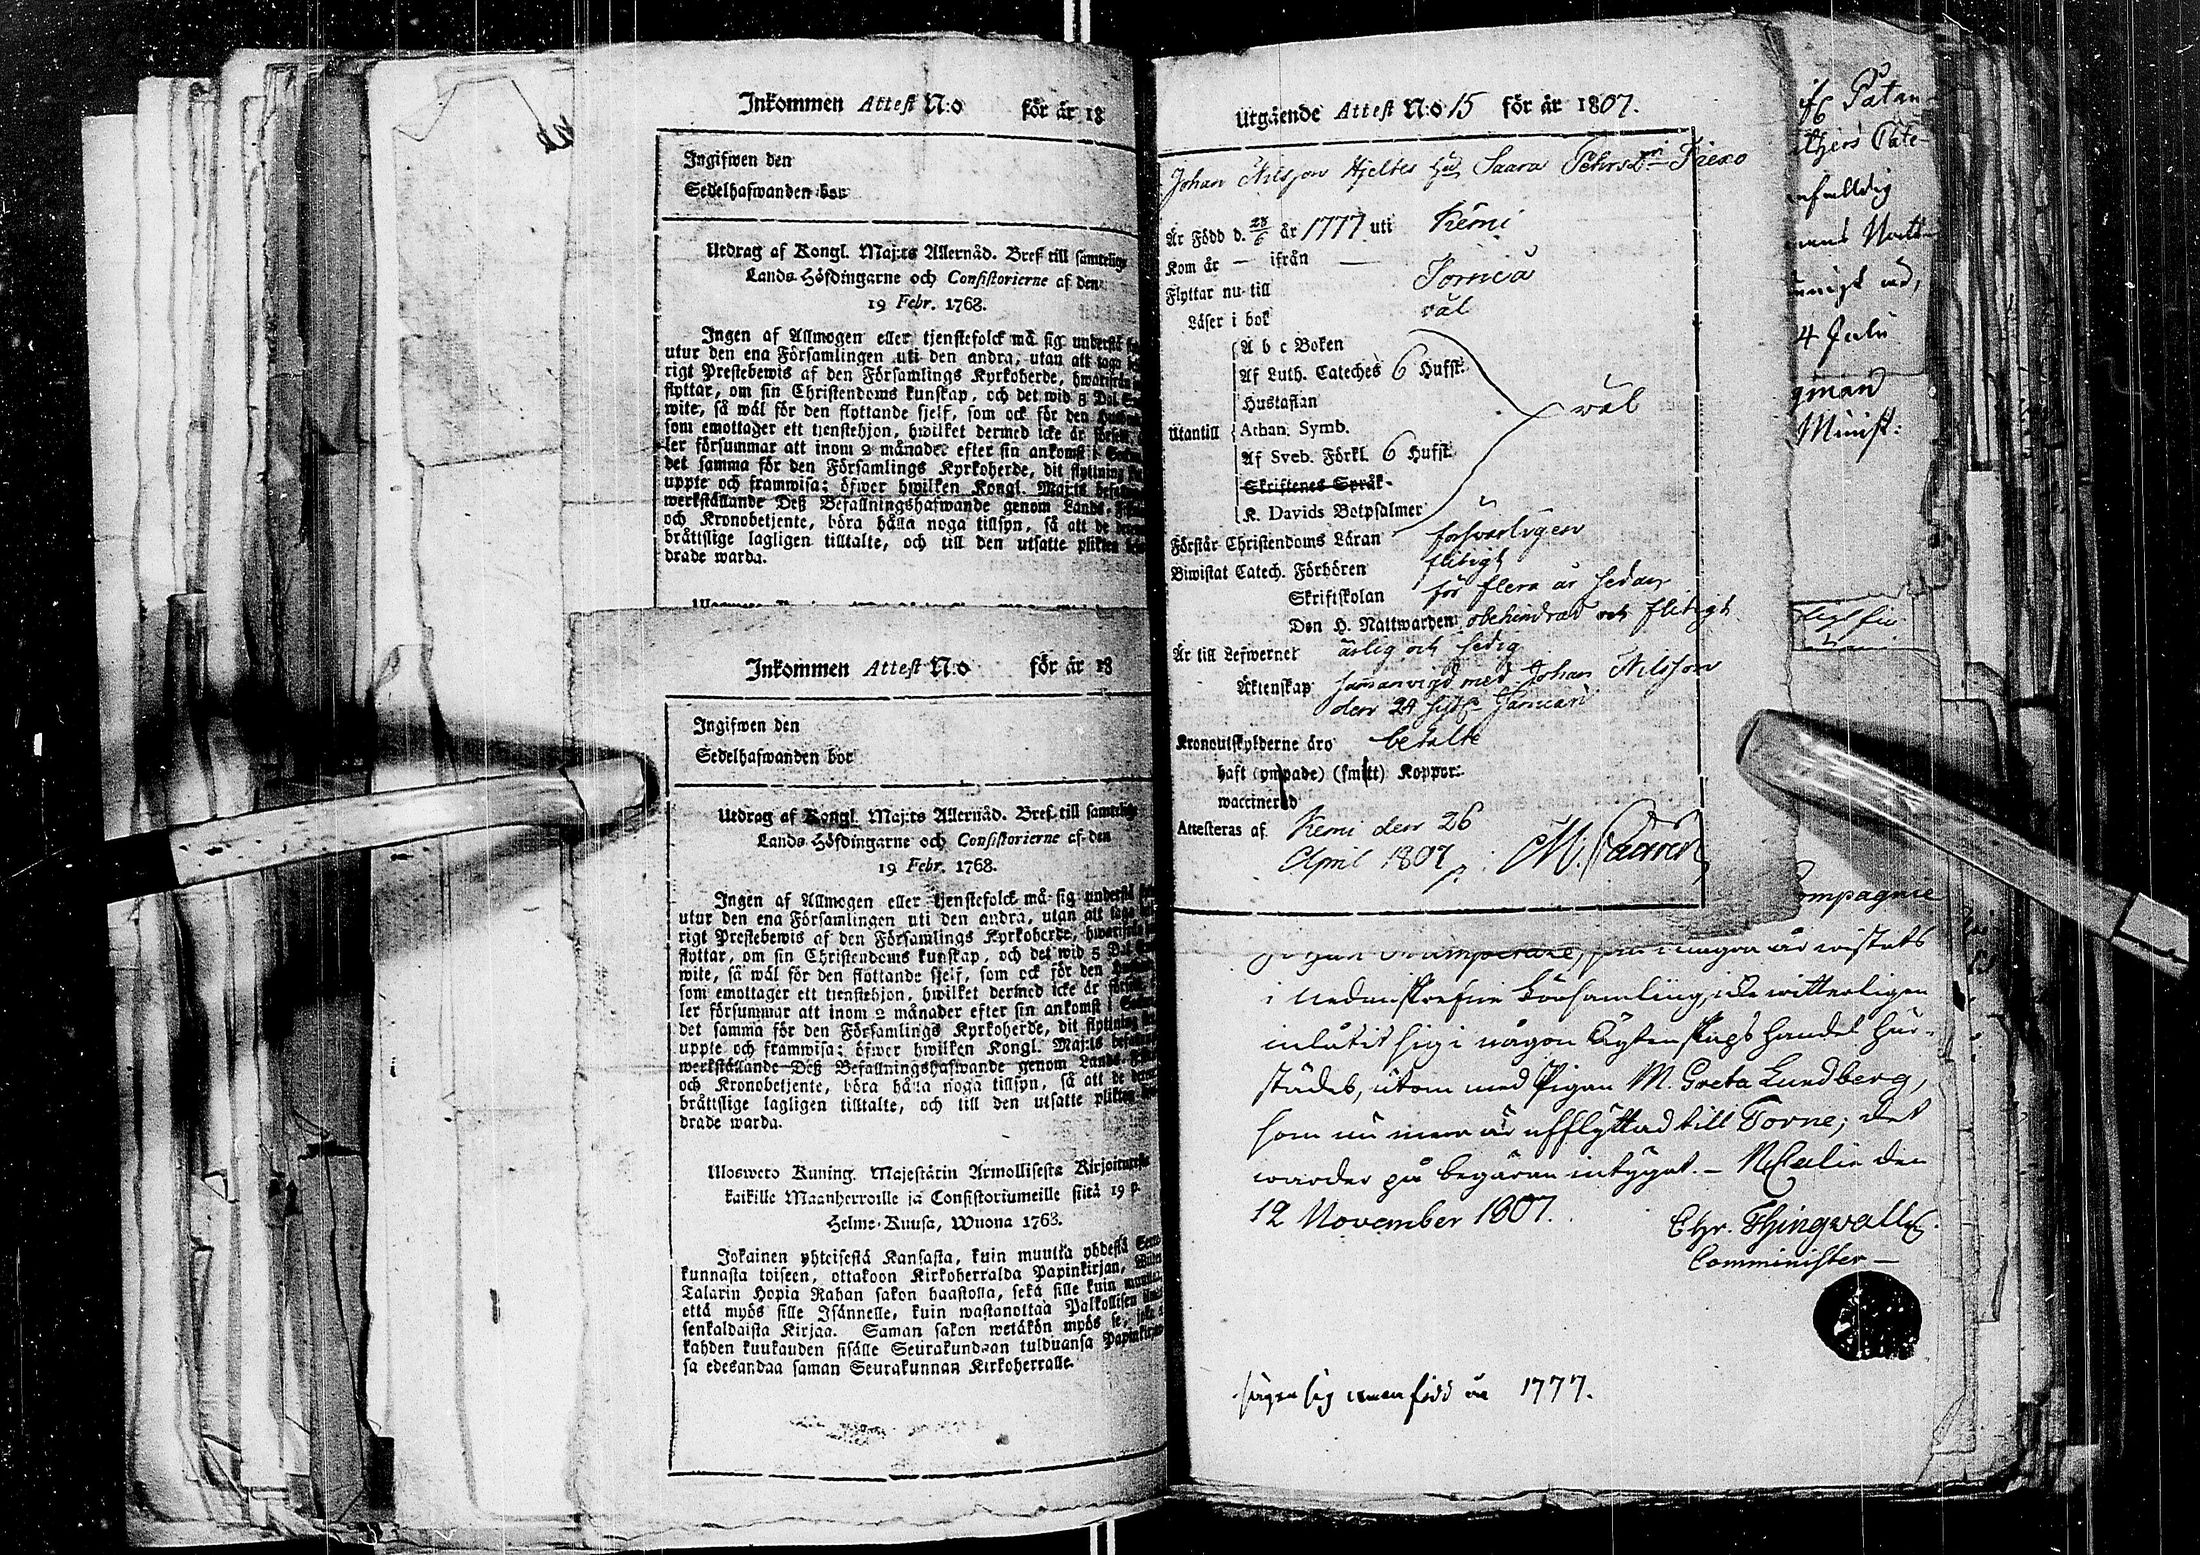 Inkommen Attest N:o för år 18
Ingifwen den
Sedelhafwanden bor
Utdrag af Kongl. Maj:ts Allernåd. Bref till samtelige
Lands-Höfdingarne och Consistorierne af den
19 Febr. 1768.
Ingen af Allmogen eller tjenstefolck må sig understå
utur den ena Församlingen uti den andra, utan att taga
rigt Prestebewis af den Församlings Kyrkoherde, hwarifrån
flyttar, om sin Christendoms kunskap, och det wid 5 Dal.
wite, så wäl för den flyttande sjelf, som ock för den
som emottager ett tjenstehjon, hwilket dermed icke är försedt
ler försummar att inom 2 månader efter sin ankomst i
det samma för den Församlings Kyrkoherde, dit flyttning
uppte och framwisa; öfwer hwilken Kongl. Maj:ts
werkställande Deß Befallningshafwande genom Lands-
och Kronobetjente, böra hålla noga tillsyn, så att de
bråttslige lagligen tilltalte, och till den utsatte plikten
drade warda.
Inkommen Attest N:o för år 18
Ingifwen den
Sedelhafwanden bor
Utdrag af Kongl. Maj:ts Allernåd. Bref till samtelige
Lands-Höfdingarne och Consistorierne af den
19 Febr. 1768.
Ingen af Allmogen eller tjenstefolck må sig understå
utur den ena Församlingen uti den andra, utan att taga
rigt Prestebewis af den Församlings Kyrkoherde, hwarifrån
flyttar, om sin Christendoms kunskap, och det wid 5 Dal.
wite, så wäl för den flyttande sjelf, som ock för den
som emottager ett tjenstehjon, hwilket dermed icke är försedt
ler försummar att inom 2 månader efter sin ankomst i
det samma för den Församlings Kyrkoherde, dit flyttning
uppte och framwisa; öfwer hwilken Kongl. Maj:ts
werkställande Deß Befallningshafwande genom Lands-
och Kronobetjente, böra hålla noga tillsyn, så att de
bråttslige lagligen tilltalte, och till den utsatte plikten
drade warda.
Ulosweto Kuning. Majestätin Armollisesta Kirjoituxesta
kaikille Maanherroille ja Consistoriumeille siitä 19 p.
Helme-Kuusa, Wuona 1768.
Jokainen yhteisestä Kansasta, kuin muutta yhdestä
kunnasta toiseen, ottakoon Kirkoherralda Papinkirjan,
Talarin Hopia Rahan sakon haastolla, sekä sille kuin muutta,
että myös sille Isännelle, kuin wastanottaa Palkollisen
senkaldaista Kirjaa. Saman sakon wetäkön myös se, joka
kahden kuukauden sisälle Seurakundaan tulduansa
sa edesandaa saman Seurakunnan Kirkoherralle.
Utgående Attest N:o 15 för år 1807.
Johan Nilsson Hjeltes Hu Saara Pehrsdr Piexo
Är Född d. 28/6 år 1777 uti Kemi
Kom år — ifrån —
Flyttar nu till Torneå
Läser i bok väl
A b c Boken
Af Luth. Cateches 6 Hufst.
Hustaflan
Utantill Athan. Symb. wäl
Af Sveb. Förkl. 6 Hufst.
Skriftenes Språk
K. Davids Botpsalmer
Förstår Christendoms Läran försvarligen
Biwistat Catech. Förhören flitigt
Skriftskolan för flera år sedan
Den H. Nattwarden obehindrad och flitigt
Är till Lefwernet ärlig och sedig
Äktenskap sammanvigd med Johan Nilsson
den 24 Januari
Kronoutskylderne äro betalte
haft (ympade) (smitt) Koppor.
waccinerad
Attesteras af Kemi den 26
April 1807
af Patan
enfalldig
4 Julii
gman
Minist:
ompagnie
som i några år wistats
i nedanskrefne Församling, icke witterligen
inlåtit sig i någon Ägtenskaps handel här-
städes, utom med Pigan M. Greta Lundberg,
som nu mera är afflyttad till Torne; det
warder på begäran intygat. — NCalix den
12 November 1807.
Chr. Thingwall
Comminister —
säger sig wara född år 1777.